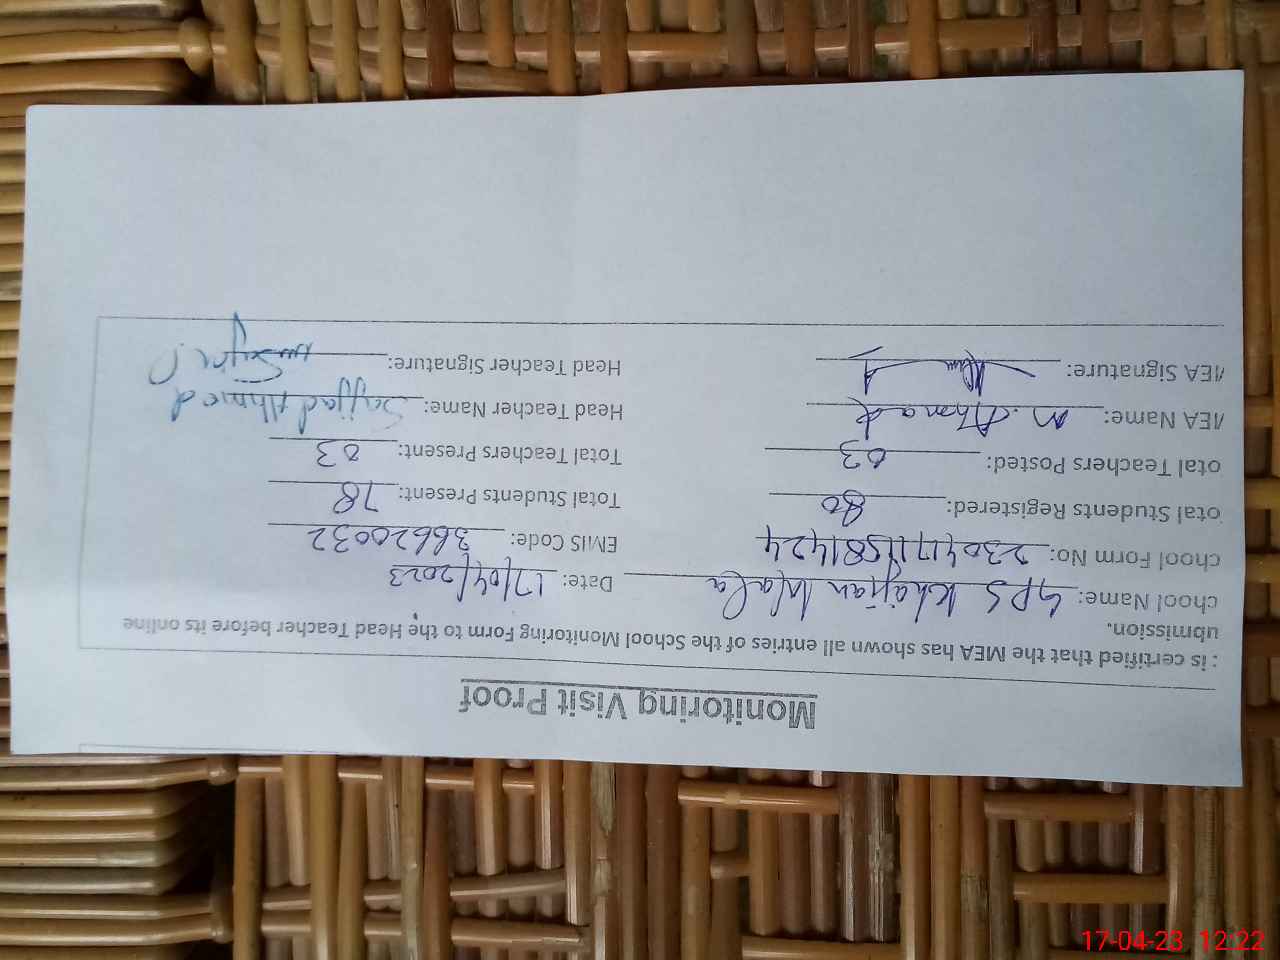 Monitoring Visit Proof
: is certified that the MEA has shown all entries of the School Monitoring Form to the Head Teacher before its online
ubmission.
chool Name: GPS Khajian Wala Date: 17/04/2023
chool Form No: EMIS Code: 36620032
otal Students Registered: 80 Total Students Present: 78
otal Teachers Posted: 03 Total Teachers Present: 03
MEA Name: M. Ahmad Head Teacher Name: Sajjad Ahmed
MEA Signature: Head Teacher Signature:
17-04-23 12:22